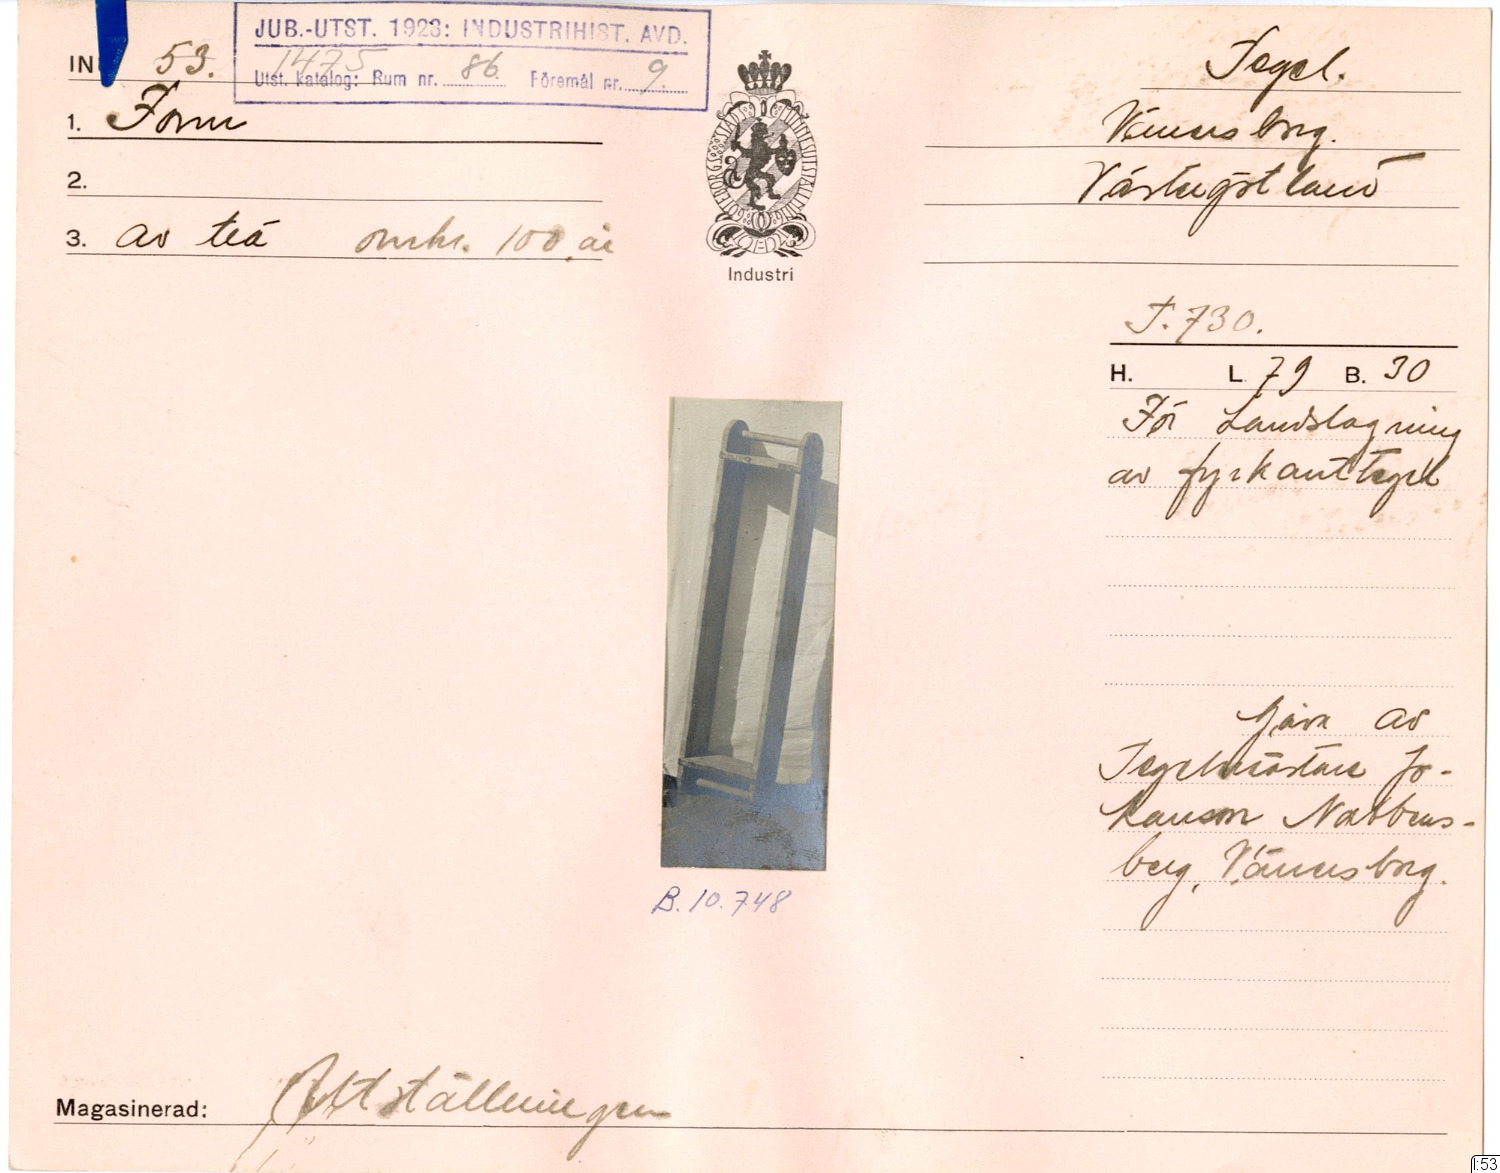 JUB.-UTST. 1923: INDUSTRIHIST. AVD.
1475
Utst. katalog: Rum nr. 86 Föremål nr. 9.
IN 53.
1. Form
2.
3. av trä omkr. 100 år
GÖTEBORGS STADS MINNESUTSTÄLLNING
Industri
Tegel.
Vänersborg.
Västergötland
T. 730.
H. L 79 B. 30
För Landslagning
av fyrkanttegel
Gåva av
Tegelmästare Jo-
hanson Nabbens-
berg, Vänersborg.
B. 10.748
Magasinerad: Utställningen
I:53